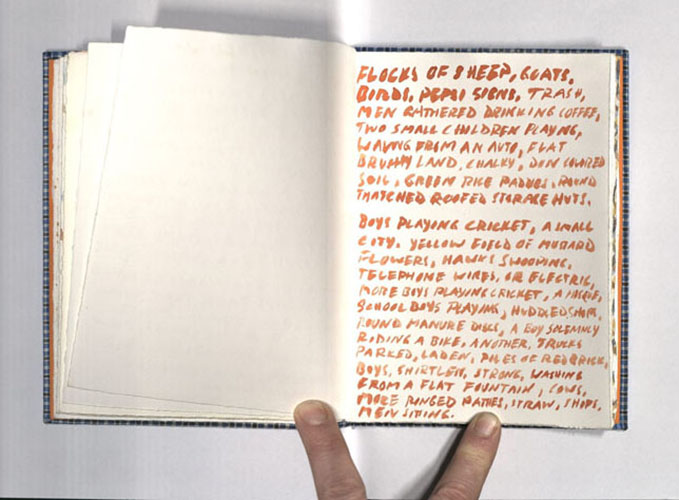 FLOCKS OF SHEEP, GOATS,
BIRDS, PEPSI SIGNS, TRASH,
MEN GATHERED DRINKING COFFEE,
TWO SMALL CHILDREN PLAYING,
WAVING FROM AN AUTO, FLAT
BRUSHY LAND, CHALKY, DUN COLORED
SOIL, GREEN RICE PADDIES, ROUND
THATCHED ROOFED STORAGE HUTS.
BOYS PLAYING CRICKET, A SMALL
CITY. YELLOW FIELD OF MUSTARD
FLOWERS, HAWKS SWOOPING,
TELEPHONE WIRES, OR ELECTRIC,
MORE BOYS PLAYING CRICKET, A MOSQUE,
SCHOOL BOYS PLAYING, HUDDLED SHOPS,
ROUND MANURE DISCS, A BOY SOLEMNLY
RIDING A BIKE, ANOTHER, TRUCKS
PARKED, LADEN, PILES OF RED BRICK,
BOYS, SHIRTLESS, STRONG, WASHING
FROM A FLAT FOUNTAIN, COWS,
MORE RINGED PATTIES, STRAW, SHOPS,
MEN SITTING.